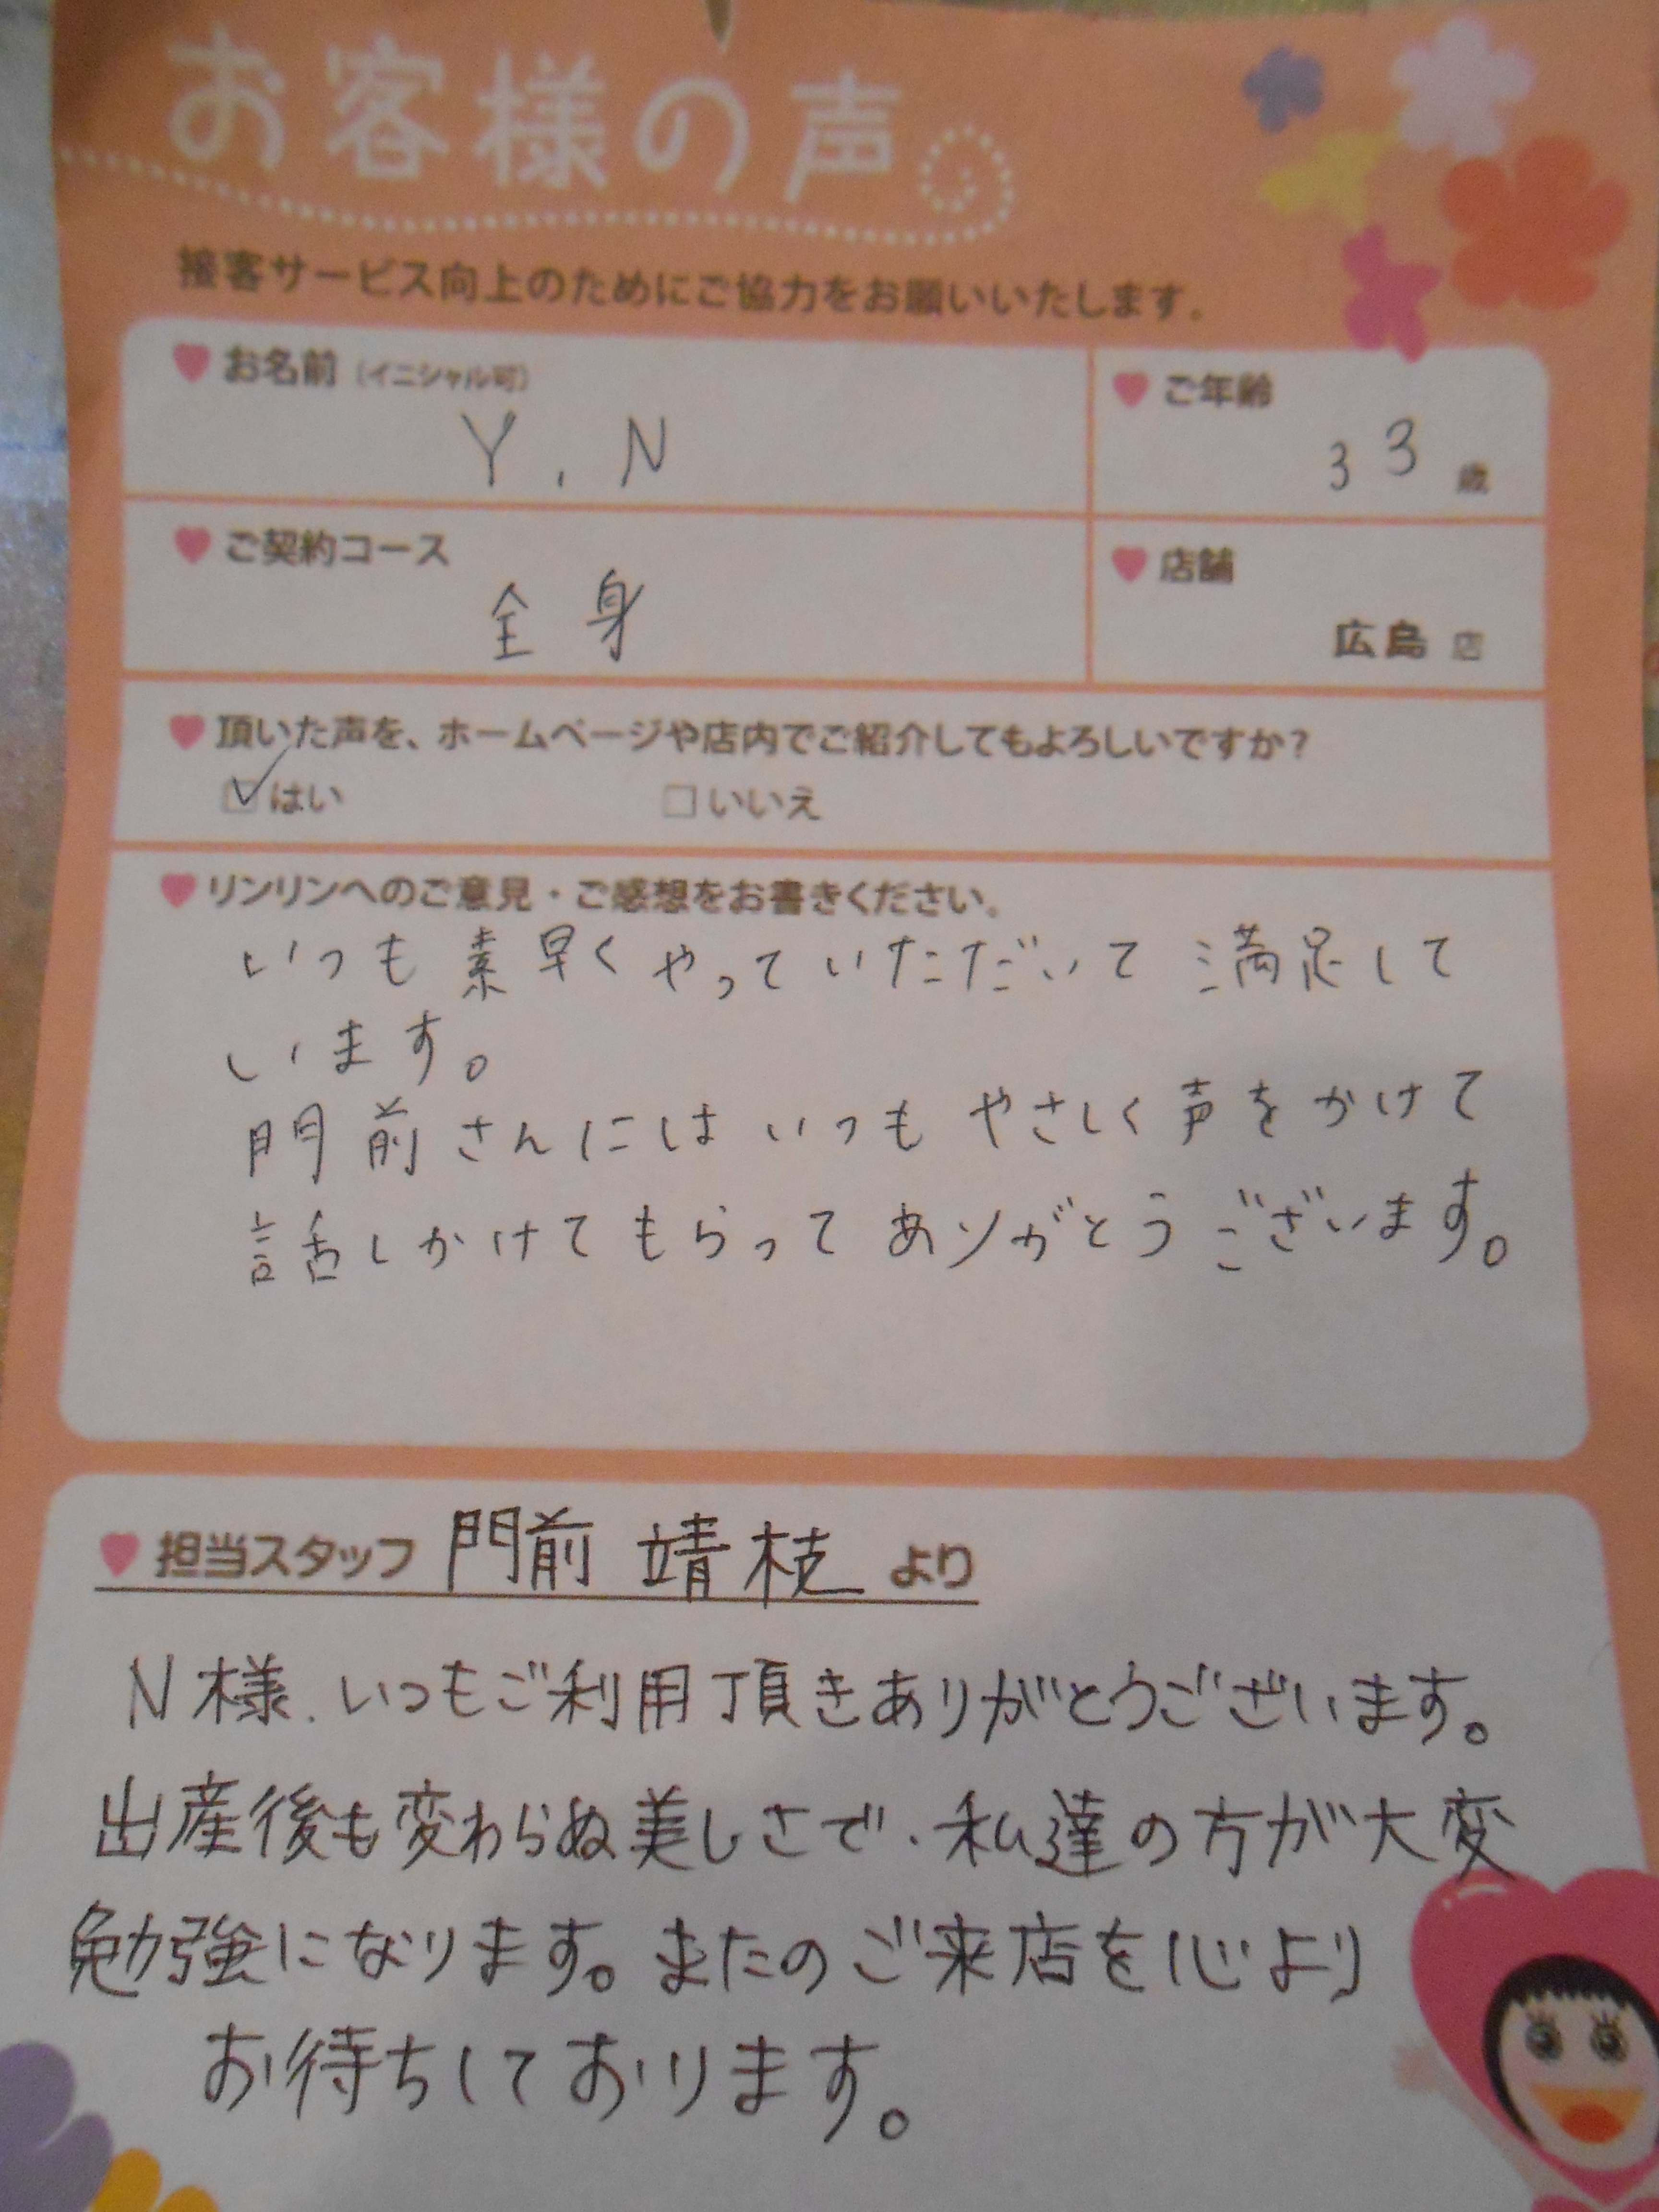 お客様の声
接客サービス向上のためにご協力をお願いいたします。
お名前（イニシャル可）
Y.N
ご年齢
33歳
ご契約コース
全身
店舗
広島店
頂いた声を、ホームページや店内でご紹介してもよろしいですか？
はい いいえ
リンリンへのご意見・ご感想をお書きください。
いつも素早くやっていただいて満足して
います。
門前さんにはいつもやさしく声をかけて
話しかけてもらってありがとうございます。
担当スタッフ 門前 靖枝 より
N様、いつもご利用頂きありがとうございます。
出産後も変わらぬ美しさで、私達の方が大変
勉強になります。またのご来店を心より
お待ちしております。